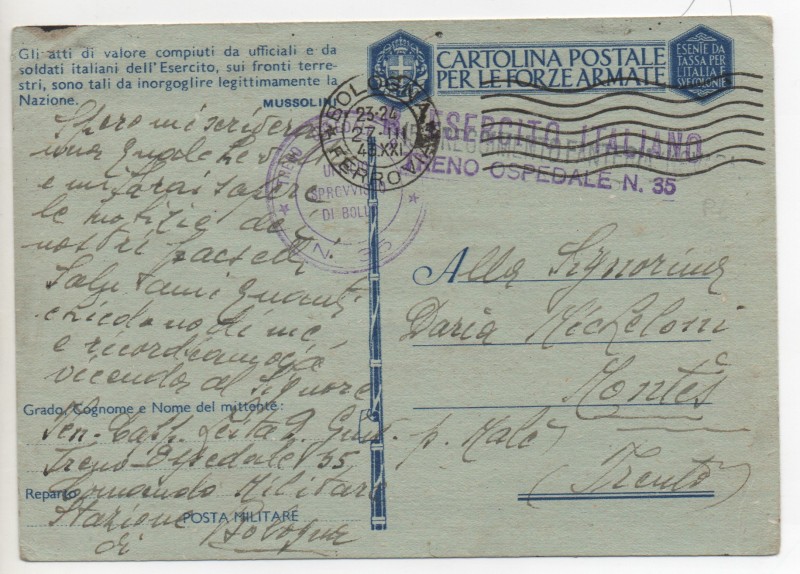 Gli atti di valore compiuti da ufficiali e da
soldati italiani dell'Esercito, sui fronti terre-
stri, sono tali da inorgoglire legittimamente la
Nazione.
MUSSOLINI
CARTOLINA POSTALE
PER LE FORZE ARMATE
ESENTE DA
TASSA PER
L'ITALIA E
SUE COLONIE
BOLOGNA
23-24
27. III
43.XXI
FERROVIA
ESERCITO ITALIANO
TRENO OSPEDALE N. 35
TRENO
SPROVVISTO
DI BOLLO
N. 35
Spero mi scriverai
una qualche volta
e mi farai sapere
le notizie dei
nostri paeselli
Salutami quanti
chiedono di me
e ricordiamoci a
vicenda al Signore
Alla Signorina
Daria Micheloni
Montes
p. Malè
(Trento)
Grado, Cognome e Nome del mittente:
Ten. Capp.
Treno-Ospedale 35
Reparto
Comando Militare
Stazione
POSTA MILITARE
di Bologna